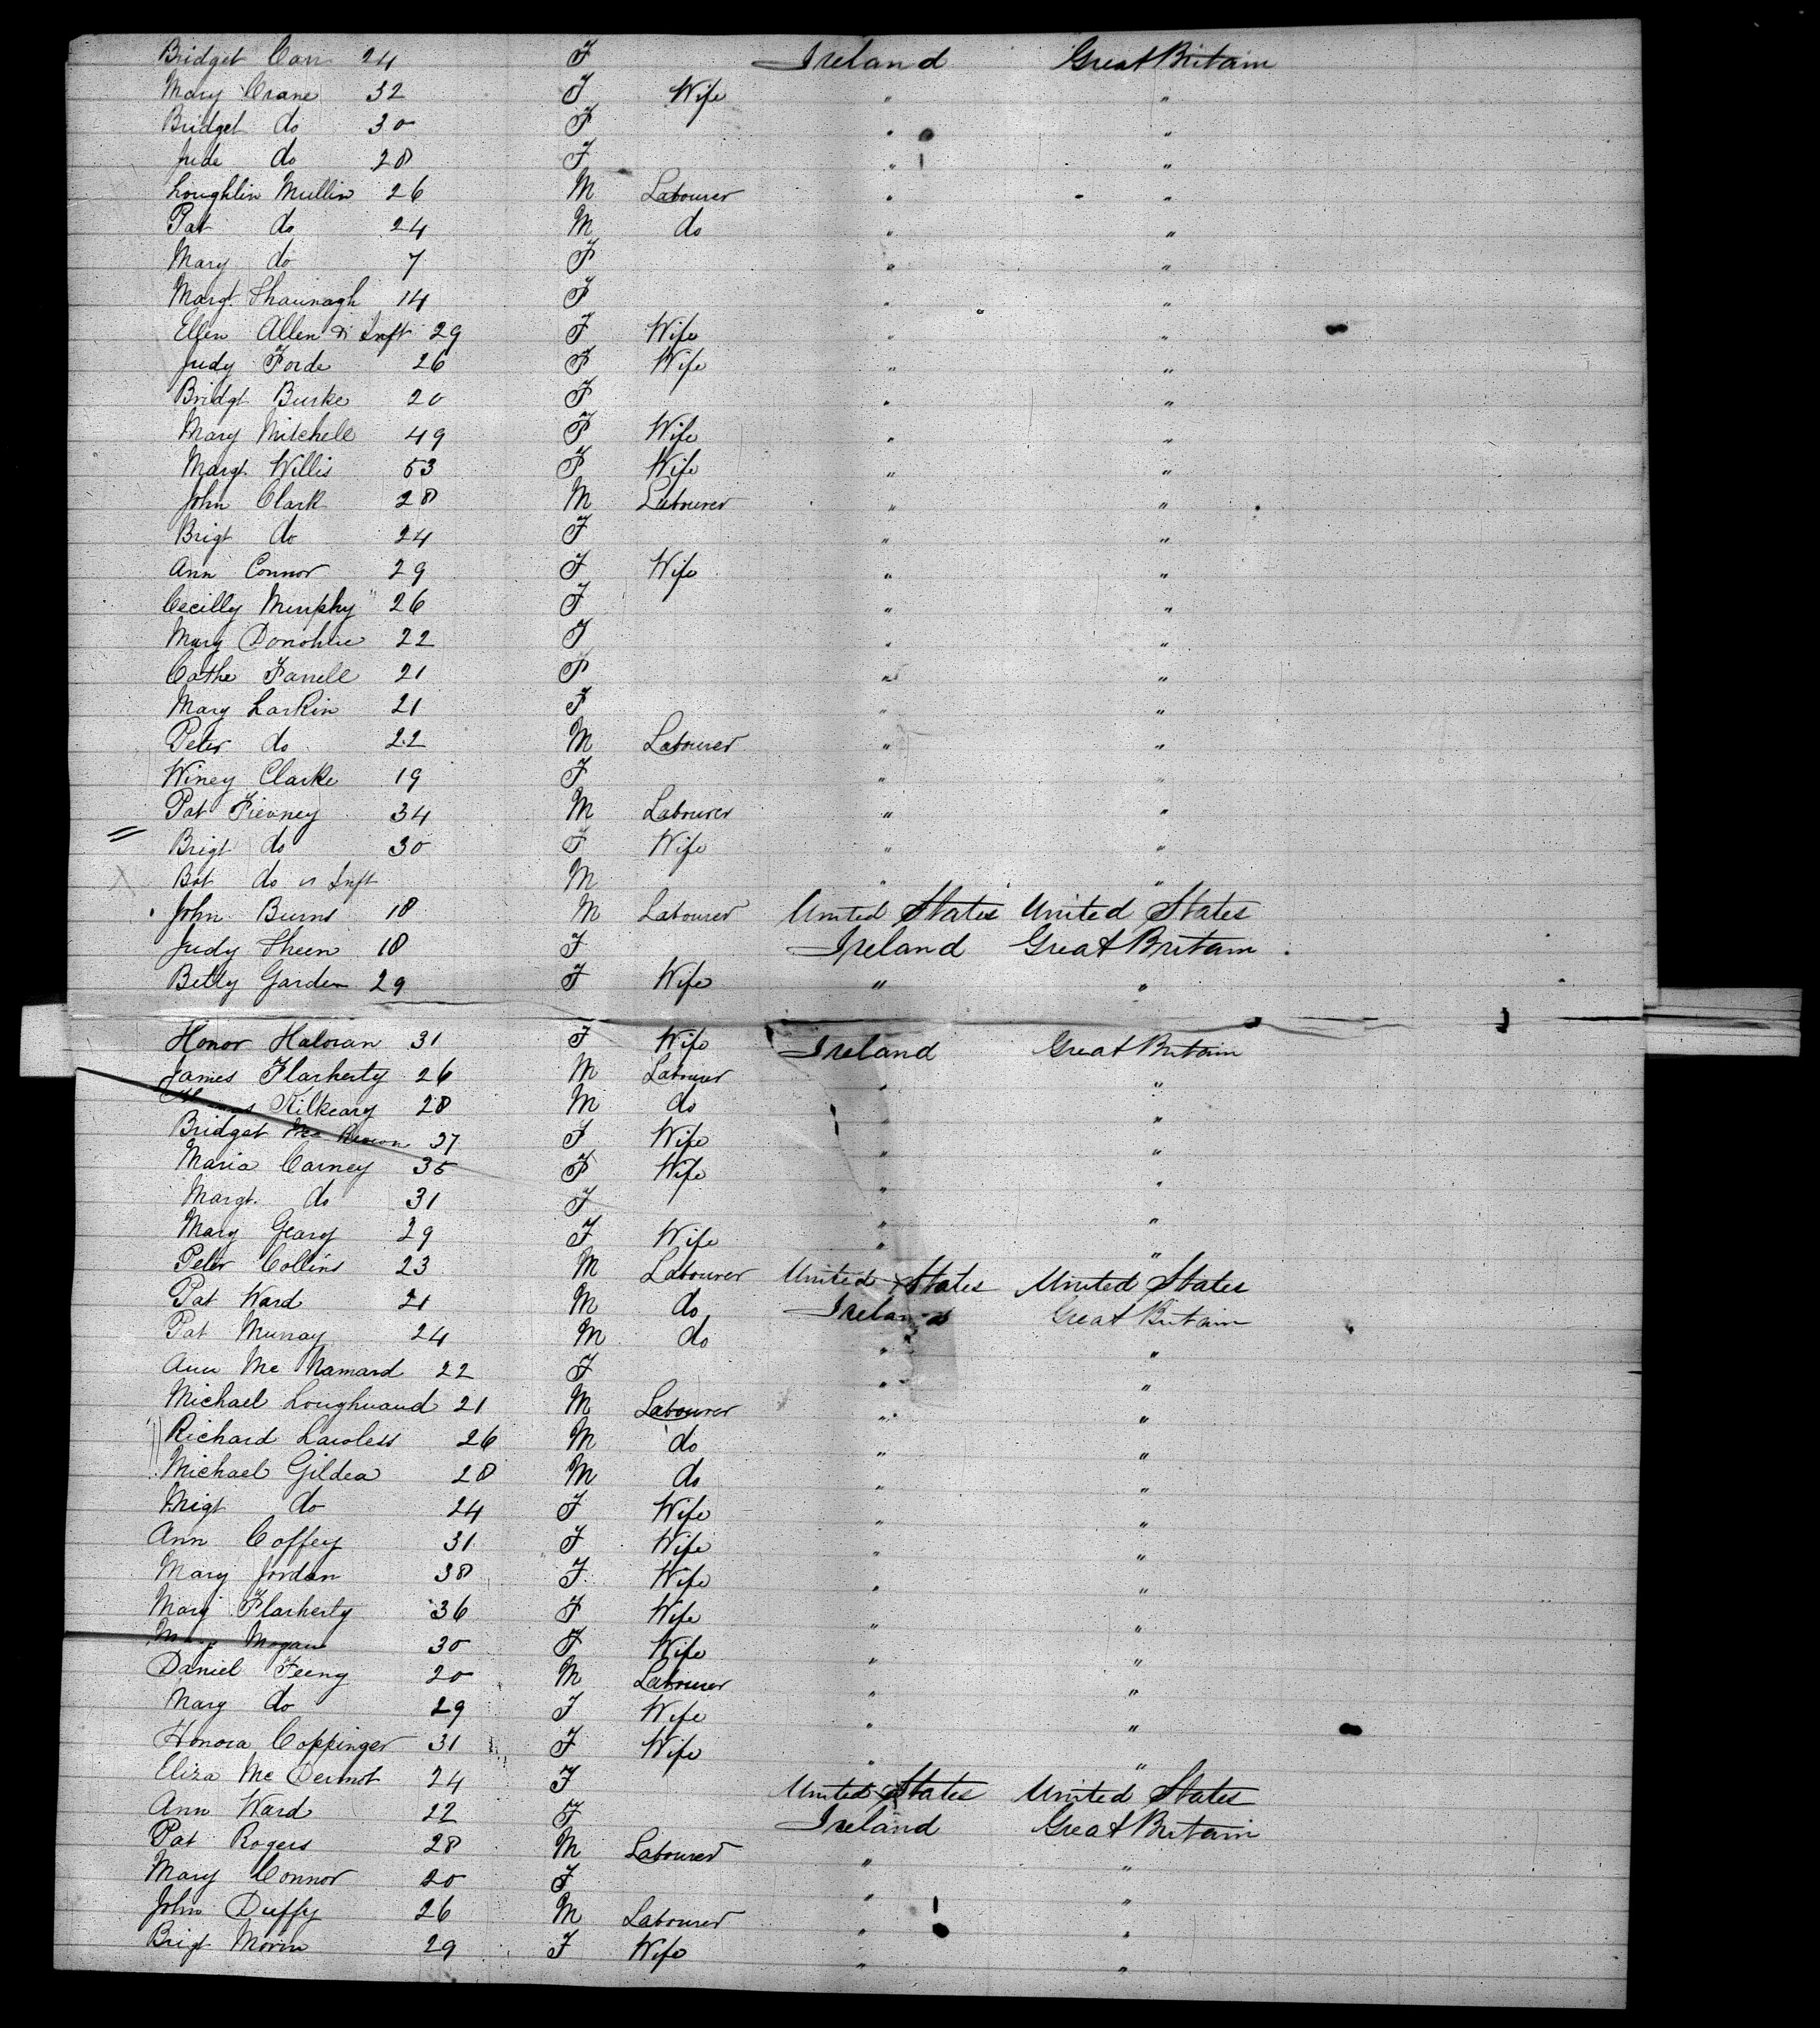 Bridget Carr 24 F Ireland Great Britain
Mary Crane 32 F Wife " "
Bridget do 30 F " "
Jude do 28 F " "
Loughlin Mullin 26 M Labourer " "
Pat do 24 M do " "
Mary do 7 F " "
Margt. Shaunagh 14 F " "
Ellen Allen & Inft 29 F Wife " "
Judy Forde 26 F Wife " "
Bridgt Burke 20 F " "
Mary Mitchell 49 F Wife " "
Margt. Willis 53 F Wife " "
John Clark 28 M Labourer " "
Brigt do 24 F " "
Ann Connor 29 F Wife " "
Cecilly Murphy 26 F " "
Mary Donohue 22 F " "
Cathe Farrell 21 F " "
Mary Larkin 21 F " "
Peter do 22 M Labourer " "
Winey Clarke 19 F " "
Pat 34 M Labourer " "
Brigt do 30 F Wife " "
Bat do Inft M " "
John Burns 18 M Labourer United States United States
Judy Sheen 18 F Ireland Great Britain
Betty Garden 29 F Wife " "
Honor Haloran 31 F Wife Ireland Great Britain
James Flarherty 26 M Labourer " "
Kilkeary 28 M do " "
Bridget 37 F Wife " "
Maria Carney 35 F Wife " "
Margt. do 31 F " "
Mary Geary 29 F Wife " "
Peter Collins 23 M Labourer United States United States
Pat Ward 21 M do Ireland Great Britain
Pat Murray 24 M do " "
Ann Mc Namard 22 F " "
Michael 21 M Labourer " "
Richard Lawless 26 M do " "
Michael Gildea 28 M do " "
do 24 F Wife " "
Ann Coffey 31 F Wife " "
Mary Jordan 38 F Wife " "
Mary Flarherty 36 F Wife " "
Mogan 30 F Wife " "
Daniel Feeny 20 M Labourer " "
Mary do 29 F Wife " "
Honora Coppinger 31 F Wife " "
Eliza Mc Dermot 24 F United States United States
Ann Ward 22 F Ireland Great Britain
Pat Rogers 28 M Labourer " "
Mary Connor 20 F " "
John Duffy 26 M Labourer " "
Brigt Morin 29 F Wife " "